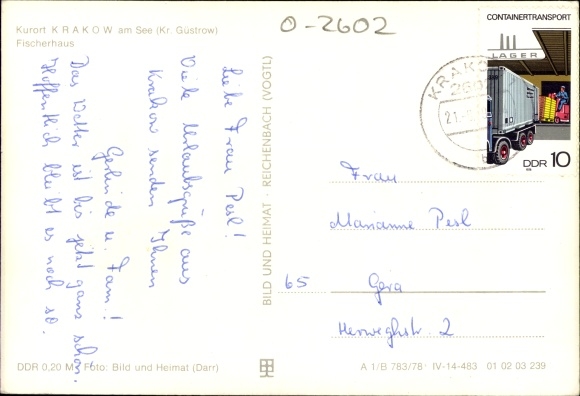 Kurort KRAKOW am See (Kr. Güstrow)
Fischerhaus
O-2602
CONTAINERTRANSPORT
LAGER
DDR 10
KRAKO
260
21.
Liebe Frau Pesl!
Viele Urlaubsgrüße aus
Krakow senden Ihnen
Gerlinde u. Fam.!
Das Wetter ist bis jetzt ganz schön.
Hoffentlich bleibt es noch so.
BILD UND HEIMAT · REICHENBACH (VOGTL)
Frau
Marianne Pesl
65 Gera
Herweghstr. 2
DDR 0,20 M · Foto: Bild und Heimat (Darr)
A 1/B 783/78 IV-14-483 01 02 03 239